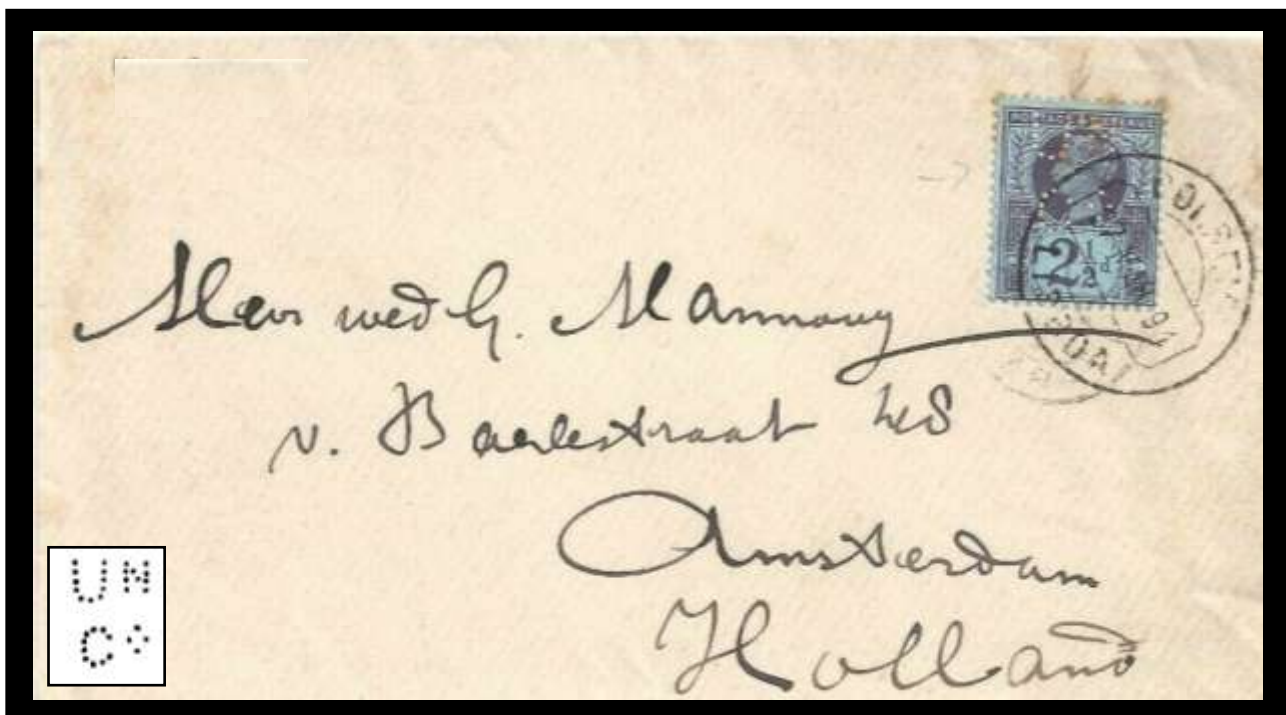 POSTAGE & REVENUE
2½d
Mevr wed G. Mannoury
v. Baerlestraat 48
Amsterdam
Holland
UN
Co